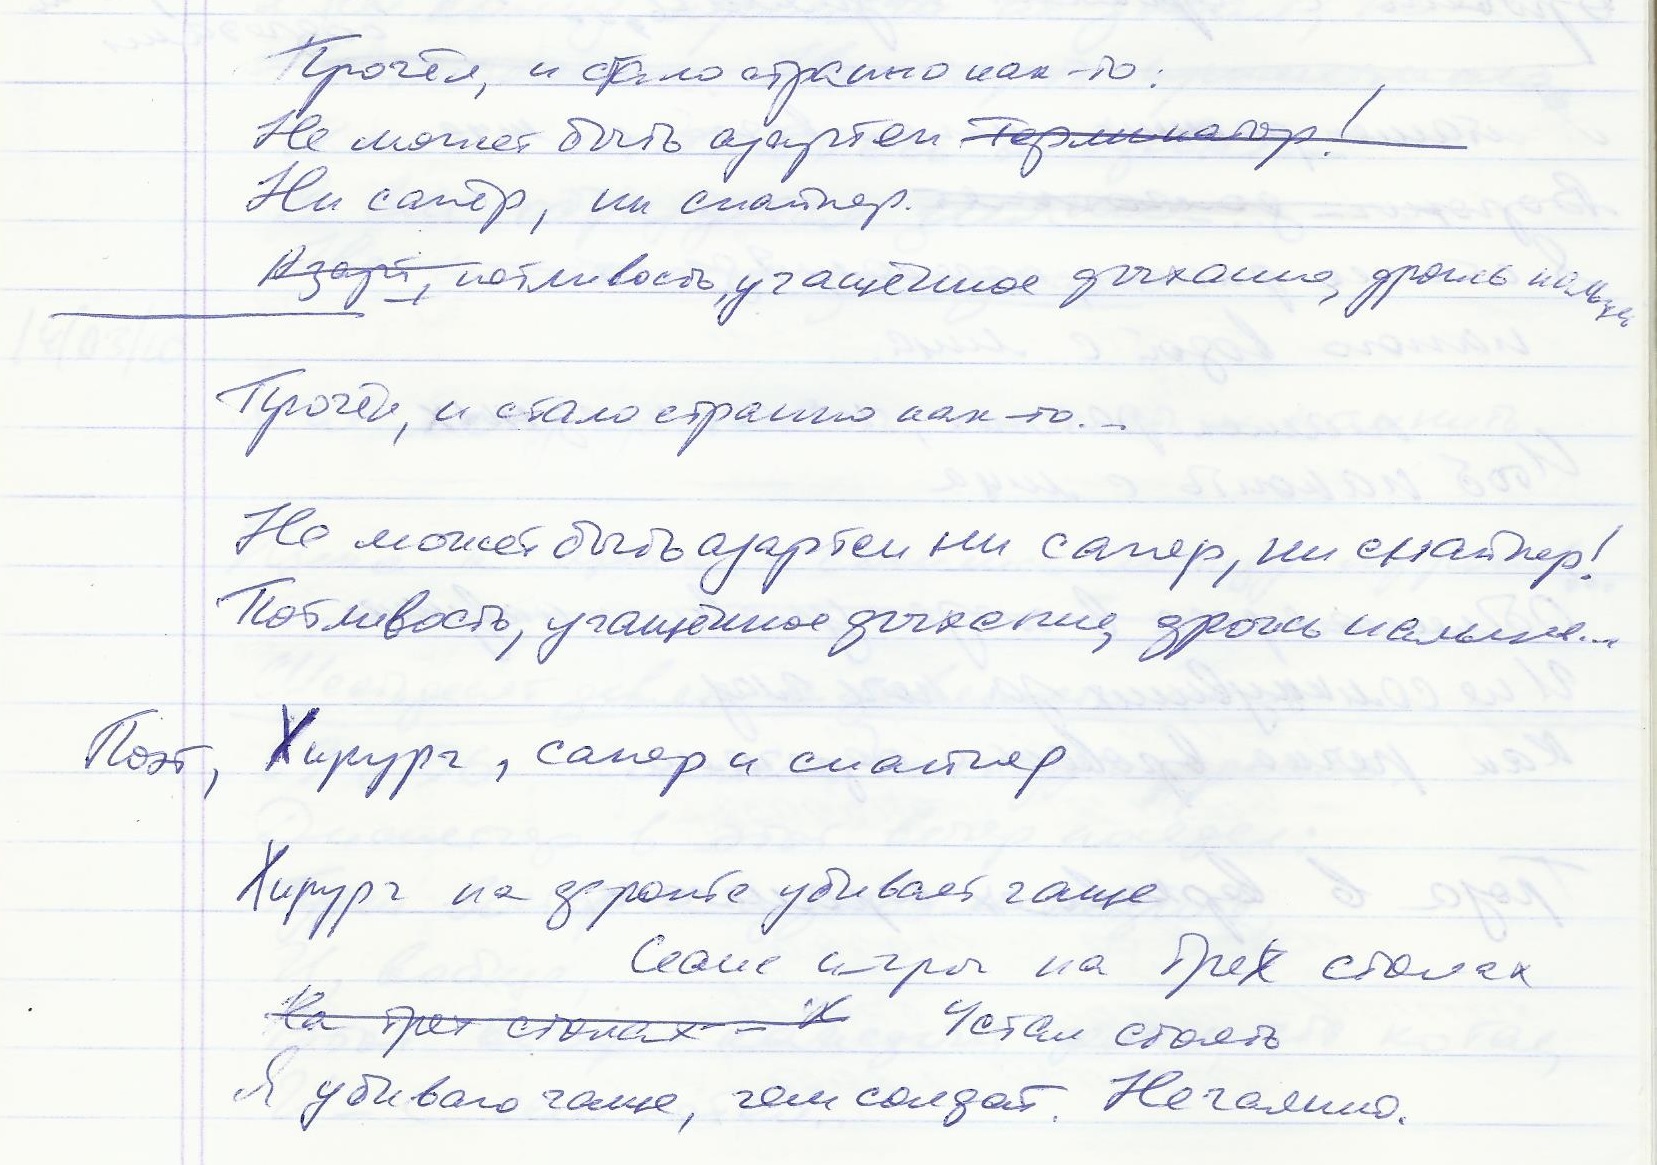 Прочёл, и стало странно как-то:
Не может быть азартен Терминатор!
Ни сапёр, ни снайпер.
Азарт, потливость, учащённое дыхание, дрожь пальцев
Прочёл, и стало странно как-то...
Не может быть азартен ни сапер, ни снайпер!
Потливость, учащённое дыхание, дрожь пальцев...
Поэт, Хирург, сапер и снайпер
Хирург на фронте убивает чаще
Сеанс игры на трех столах
На трех столах – Х Устал стоять
Я убиваю чаще, чем солдат. Нечаянно.